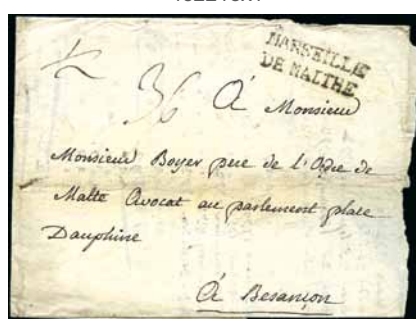 MARSEILLE
DE MALTHE
36 A Monsieur
Monsieur Boyer pere de l'Ordre de
Malte Avocat au parlement place
Dauphine
A Besançon